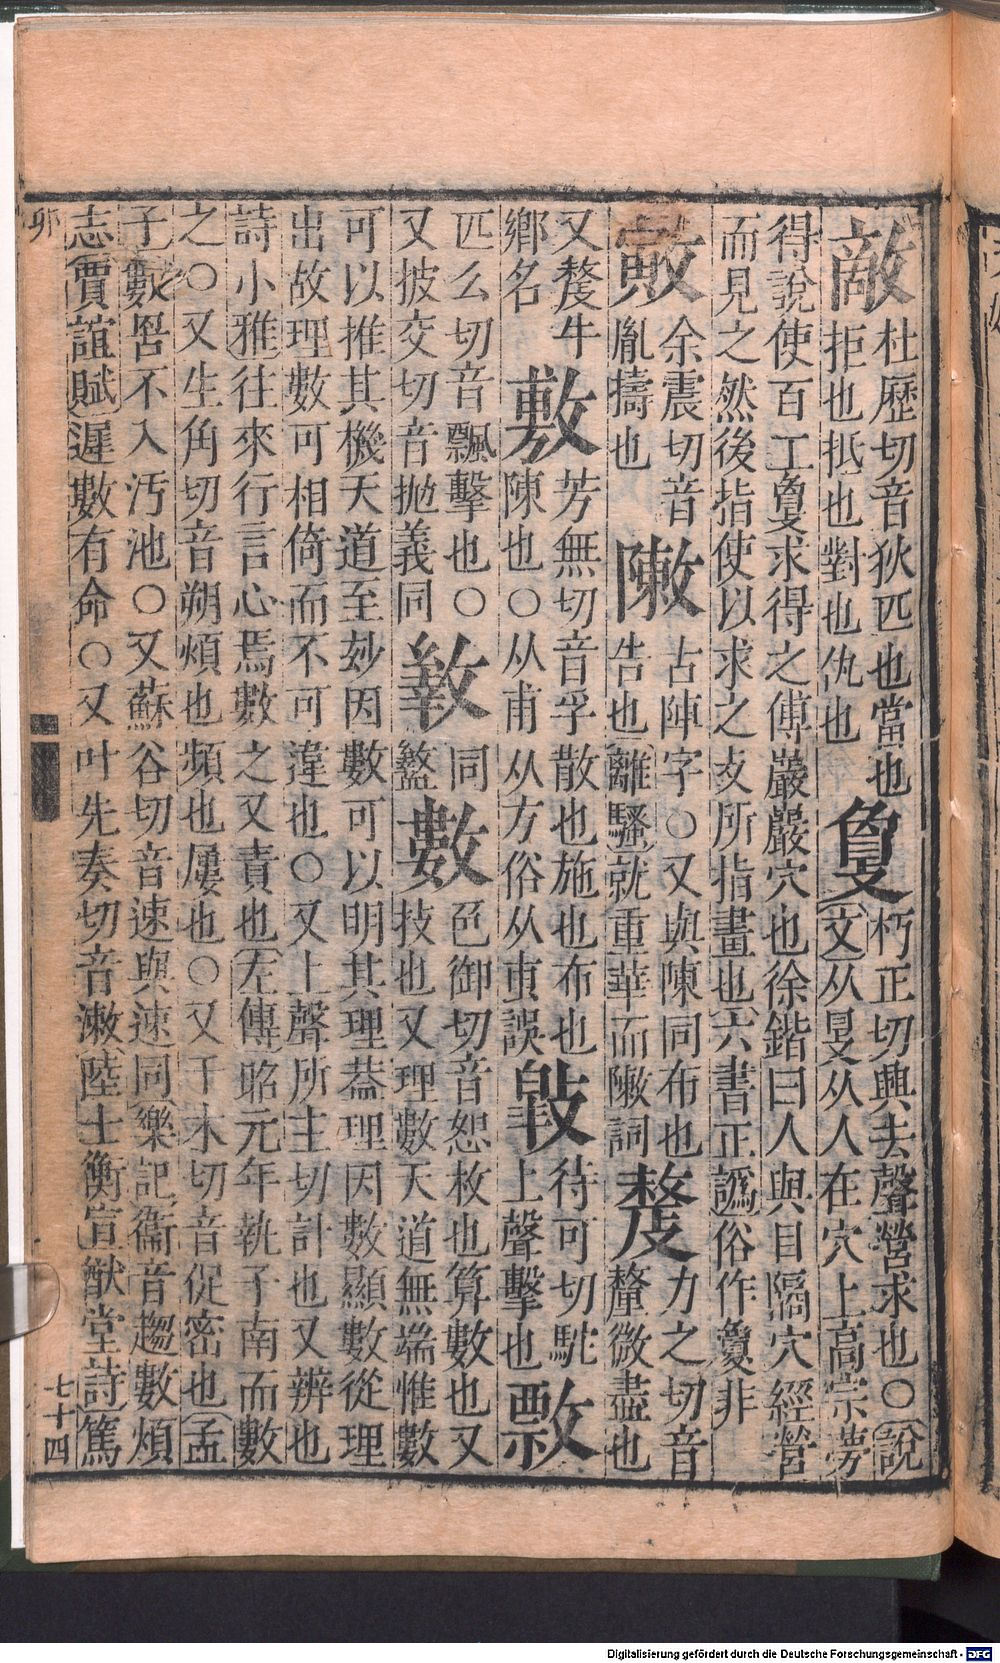 敵
杜歷切音狄匹也當也
拒也抵也對也仇也
敻
朽正切與去聲營求也○說
文从𥄎从人在穴上高宗夢
得說使百工敻求得之傅巖巖穴也徐鍇曰人與目隔穴經營
而見之然後指使以求之攴所指畫也六書正譌俗作敻非
余震切音
胤擣也
敶
古陣字○又與陳同布也
告也離騷就重華而敶詞
犛
力之切音
釐微盡也
又犛牛
鄉名
敷
芳無切音孚散也施也布也
陳也○从甫从方俗从専誤
待可切駝
上聲擊也
敼
匹么切音飄擊也○
又披交切音抛義同
同
盭
數
色御切音恕枚也算數也又
技也又理數天道無端惟數
可以推其機天道至妙因數可以明其理葢理因數顯數從理
出故理數可相倚而不可違也○又上聲所主切計也又辨也
詩小雅往來行言心焉數之又責也左傳昭元年執子南而數
之○又生角切音朔煩也頻也屢也○又千木切音促密也孟
子數罟不入汚池○又蘇谷切音速與速同樂記衞音趨數煩
志賈誼賦遲數有命○又叶先奏切音漱陸士衡宣猷堂詩篤
卯
七十四
Digitalisierung gefördert durch die Deutsche Forschungsgemeinschaft - DFG